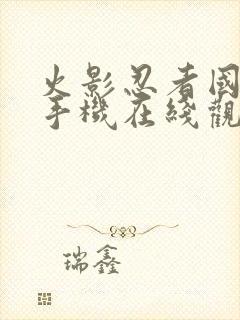 火影忍者国
手機在綫觀
瑞鑫